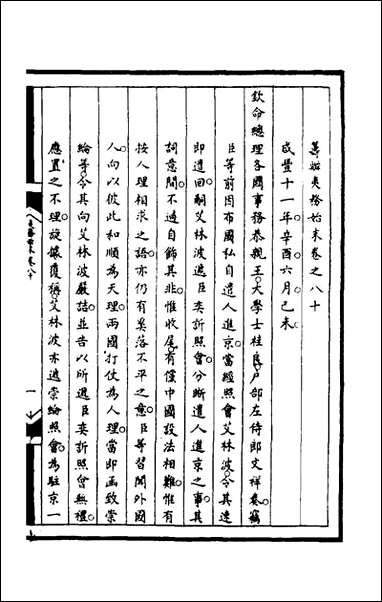 籌辦夷務始末卷之八十
咸豐十一年辛酉六月己未
欽命總理各國事務恭親王大學士桂良戶部左侍郎文祥奏竊
臣等前因布國私自遣人進京當經照會艾林波令其速
即遣回嗣艾林波遞臣奕訢照會分晰遣人進京之事其
詞意間不過自飾其非惟收尾有僅中國設法相難惟有
按人理相求之語亦仍有莫落不平之意臣等習聞外國
人向以彼此和順為天理兩國打仗為人理當即函致崇
綸等令其向艾林波嚴詰並告以所遞臣奕訢照會無禮
應置之不理旋據覆稱艾林波亦遞崇綸照會為駐京一
卷八十
一